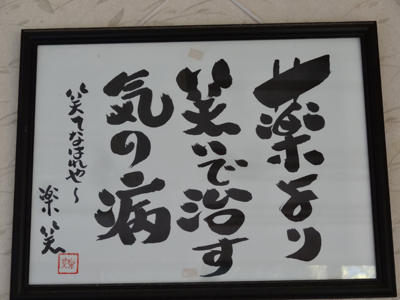 薬より
笑いで治す
気の病
笑てなはれや〜
楽笑